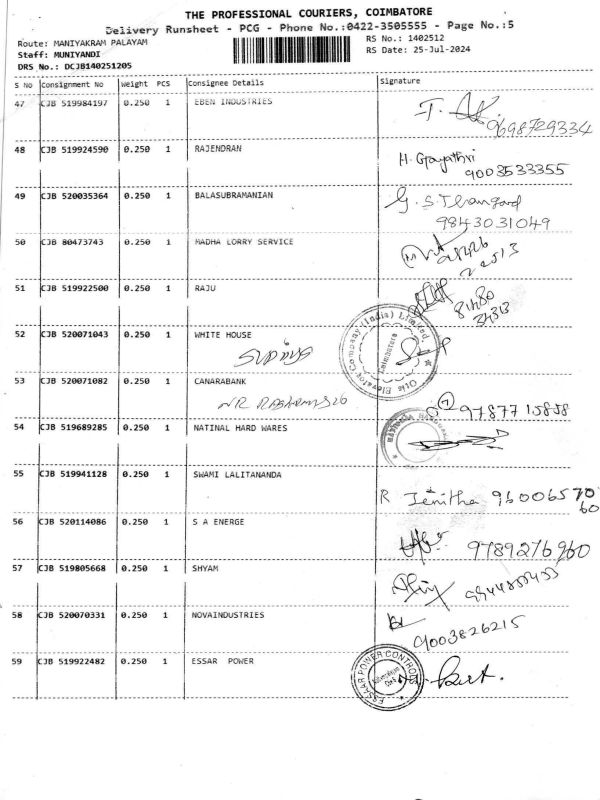 THE PROFESSIONAL COURIERS, COIMBATORE
Delivery Runsheet - PCG - Phone No.:0422-3505555 - Page No.:5
Route: MANIYAKRAM PALAYAM
RS No.: 1402512
Staff: MUNIYANDI
RS Date: 25-Jul-2024
DRS No.: DCJB140251205
S No Consignment No Weight PCS Consignee Details Signature
47 CJB 519984197 0.250 1 EBEN INDUSTRIES
9698729334
48 CJB 519924590 0.250 1 RAJENDRAN H. Gayathri
9003533355
49 CJB 520035364 0.250 1 BALASUBRAMANIAN
9843031049
50 CJB 80473743 0.250 1 MADHA LORRY SERVICE
51 CJB 519922500 0.250 1 RAJU
52 CJB 520071043 0.250 1 WHITE HOUSE
Otis Elevator Company (India) Limited
Coimbatore
53 CJB 520071082 0.250 1 CANARABANK
9787715858
54 CJB 519689285 0.250 1 NATINAL HARD WARES
55 CJB 519941128 0.250 1 SWAMI LALITANANDA
R Jenitha 9600657060
56 CJB 520114086 0.250 1 S A ENERGE
9789276960
57 CJB 519805668 0.250 1 SHYAM
58 CJB 520070331 0.250 1 NOVAINDUSTRIES
9003826215
59 CJB 519922482 0.250 1 ESSAR POWER
ESSAR POWER CONTROL